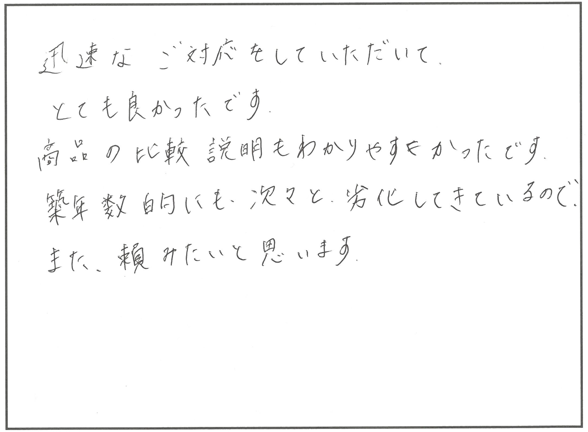 迅速な ご対応をしていただいて、
とても良かったです。
商品の比較説明もわかりやすくかったです。
築年数的にも、次々と、劣化してきているので、
また、頼みたいと思います。